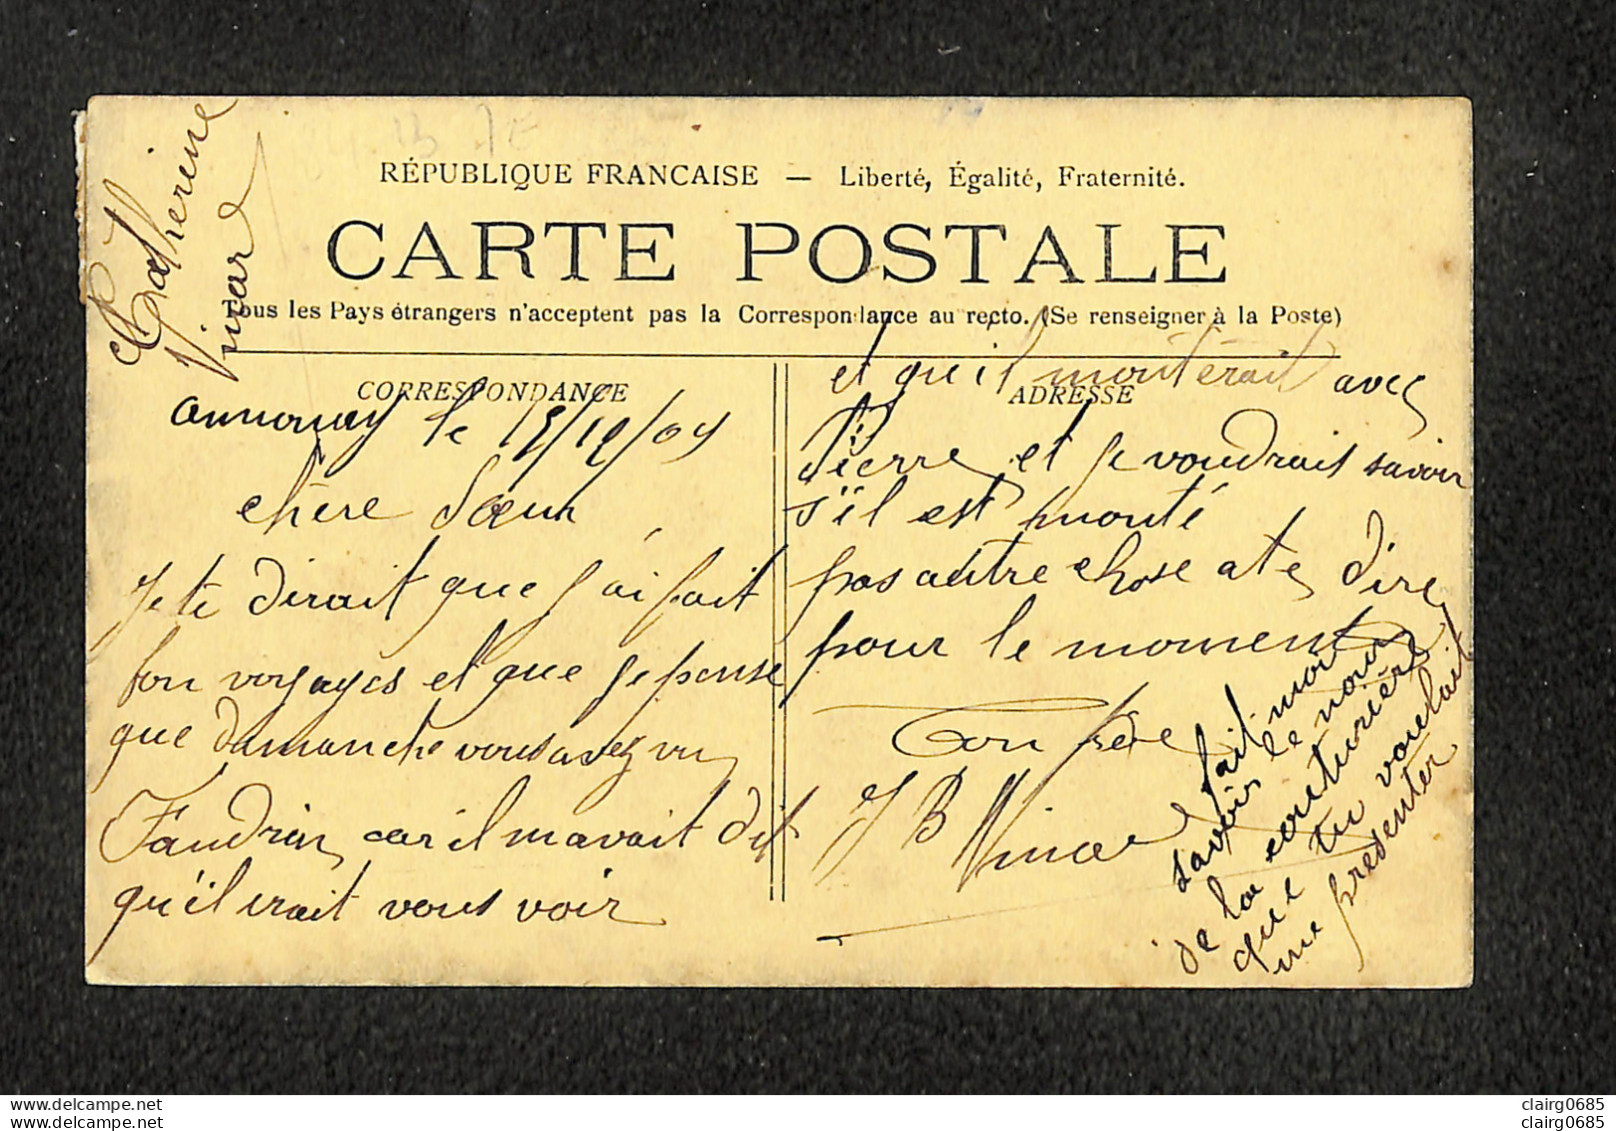 Catherine
Vinard
RÉPUBLIQUE FRANCAISE — Liberté, Égalité, Fraternité.
CARTE POSTALE
Tous les Pays étrangers n'acceptent pas la Correspondance au recto. (Se renseigner à la Poste)
CORRESPONDANCE
annonay le /09
chère Sœur
Je te dirait que j'ai fait
bon voyages et que je pense
que damanche vous avez vu
Faudrin car il mavait dit
qu'il irait vous voir
ADRESSE
et qu'il monterait avec
Pierre et je voudrais savoir
s'il est monté
pas autre chose a te dire
pour le moment
Ton frère
J B Vinard
fait moi
savoir le nom
de la couturière
que tu voulait
me présenter
delcampe.net
clairg0685
clairg0685